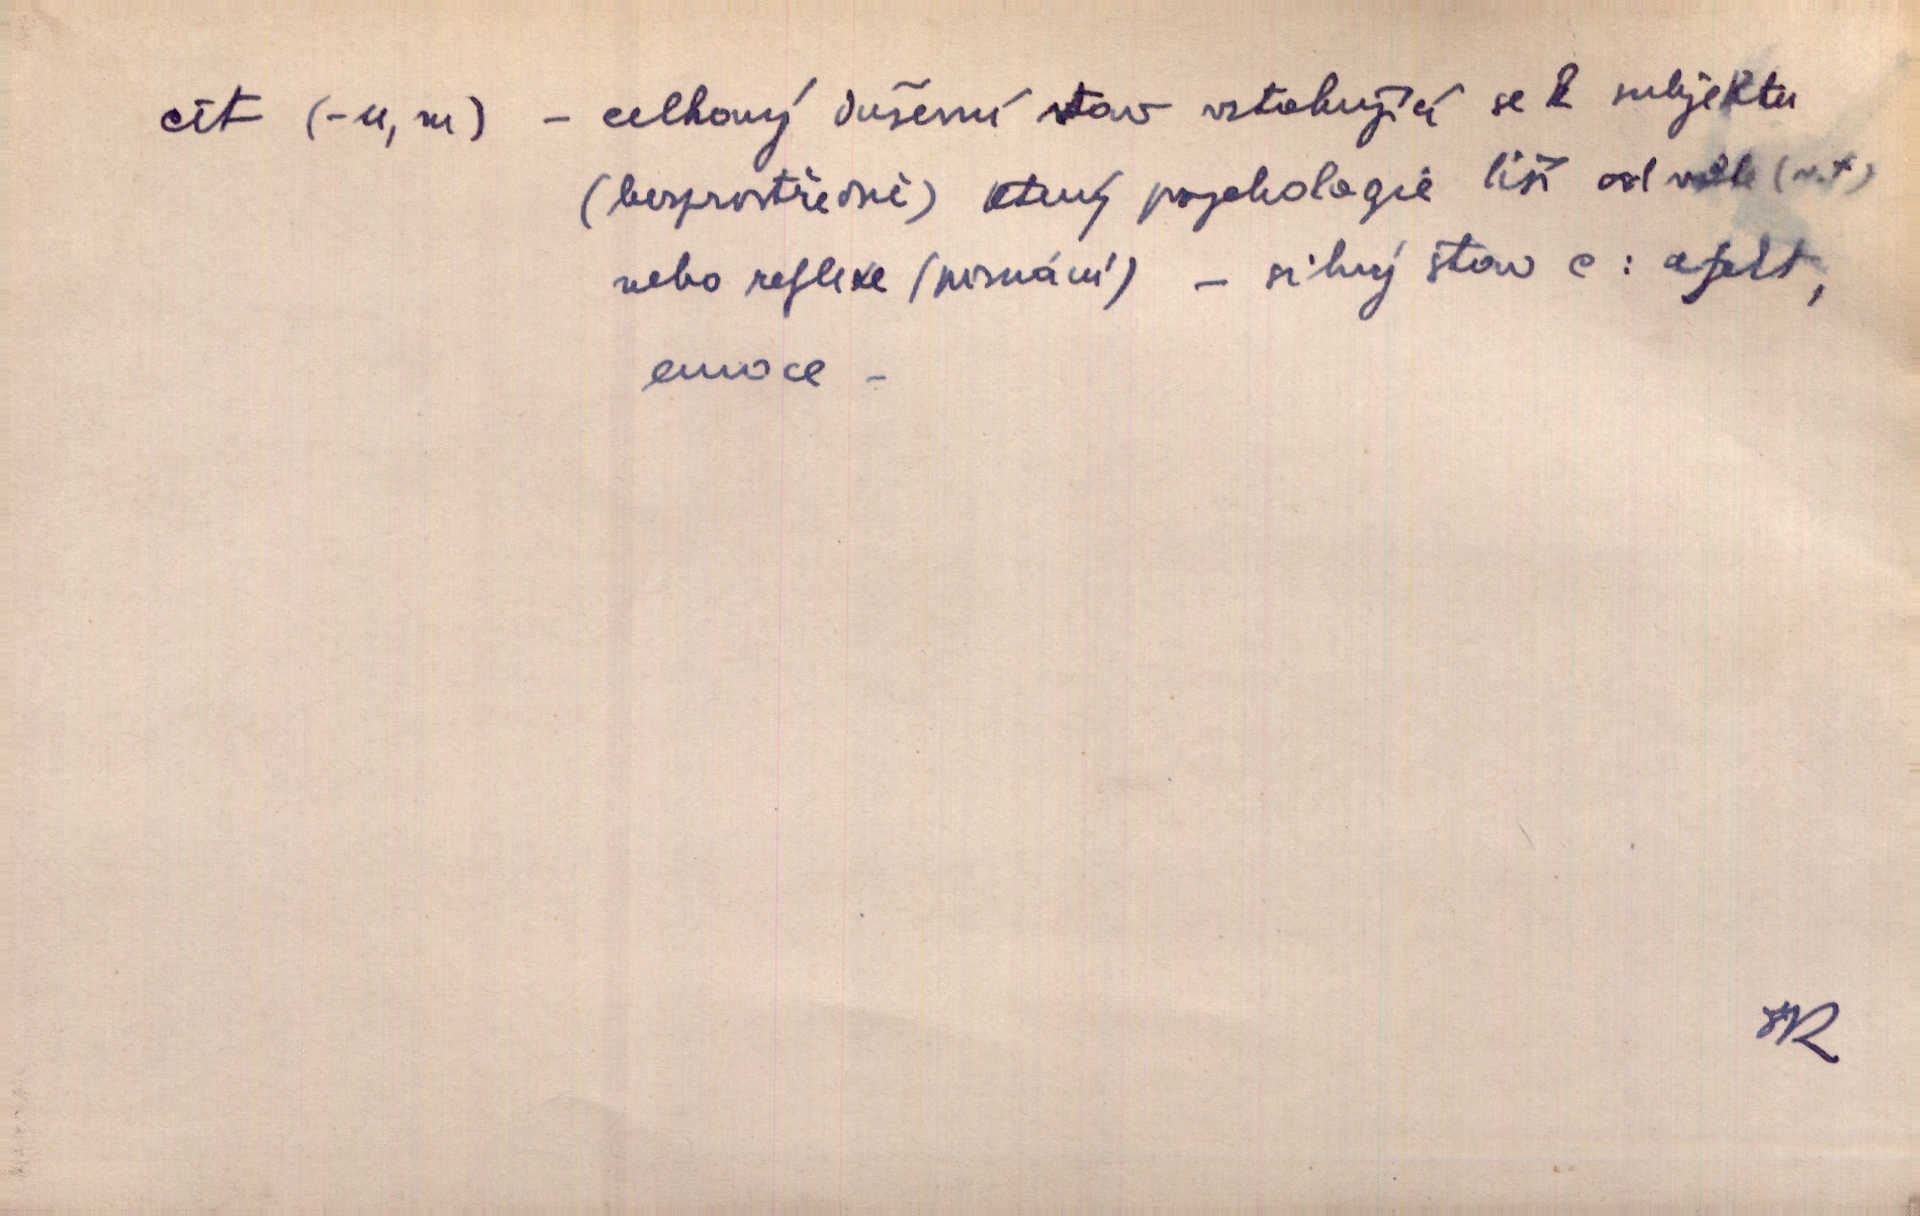 cit (-u, m) – celkový duševní stav vztahující se k subjektu
(bezprostředně) který psychologie liší od vůle (v.t)
nebo reflexe (poznání) – silný stav c : afekt,
emoce –